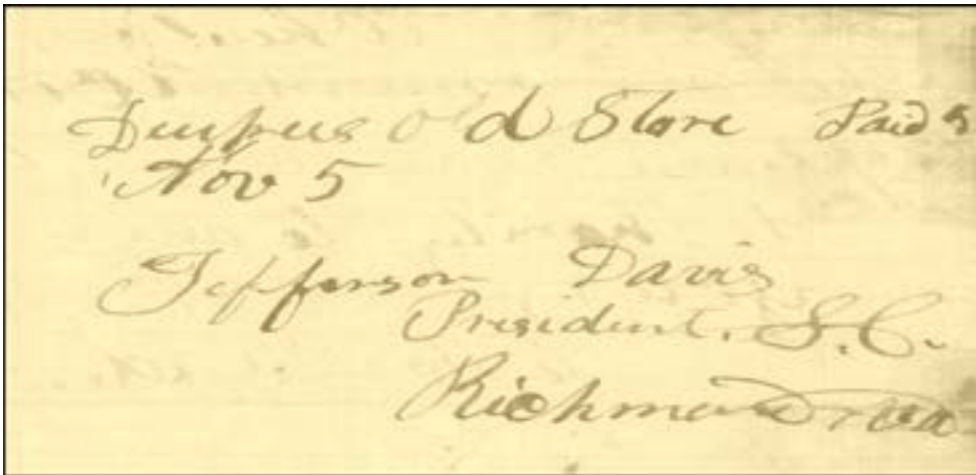 Dupree Old Store Paid 5
Nov 5
Jefferson Davis
President, S.C.
Richmond Va